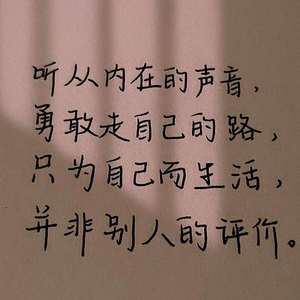 听从内在的声音,
勇敢走自己的路,
只为自己而生活,
并非别人的评价。